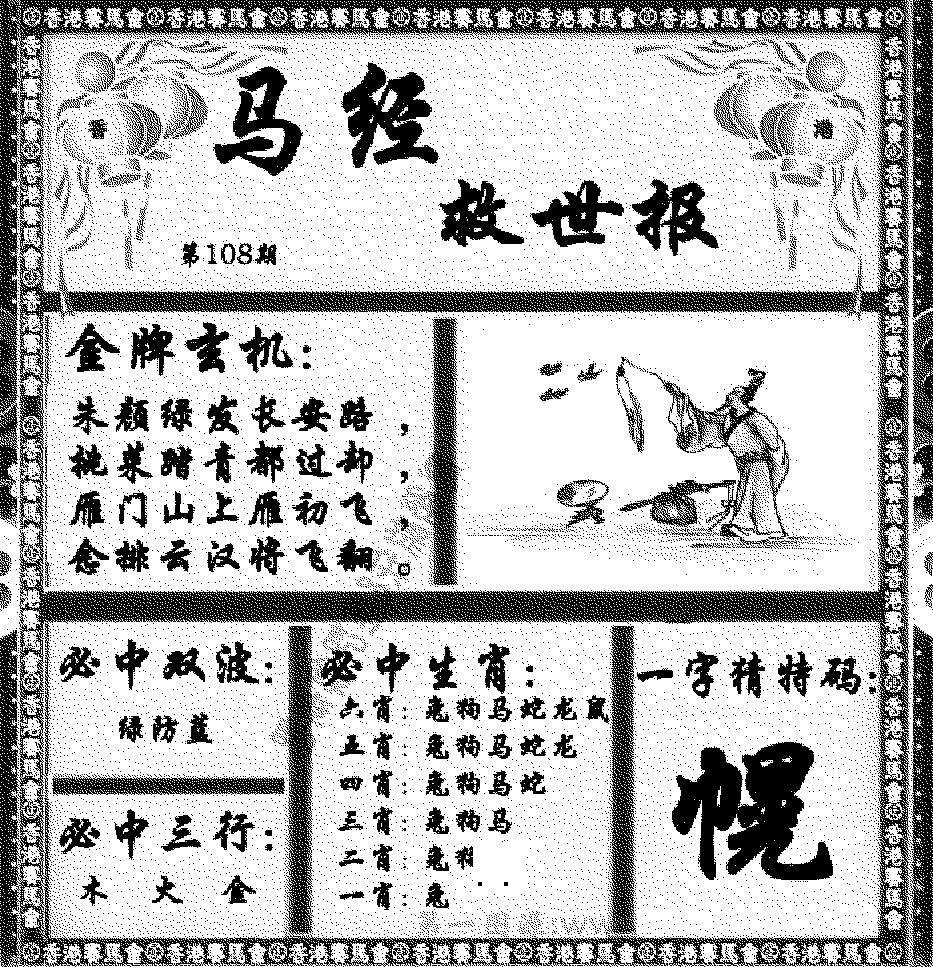 香港賽馬會香港賽馬會香港賽馬會香港賽馬會香港賽馬會香港賽馬會香港賽馬會
香
港
马经
救世报
第108期
金牌玄机:
朱颜绿发长安路,
挑菜踏青都过却,
雁门山上雁初飞,
念排云汉将飞翻。
必中双波:
绿防蓝
必中三行:
木 火 金
必中生肖:
六肖: 兔狗马蛇龙鼠
五肖: 兔狗马蛇龙
四肖: 兔狗马蛇
三肖: 兔狗马
二肖: 兔狗
一肖: 兔
一字猜特码:
幌
香港賽馬會香港賽馬會香港賽馬會香港賽馬會香港賽馬會香港賽馬會香港賽馬會